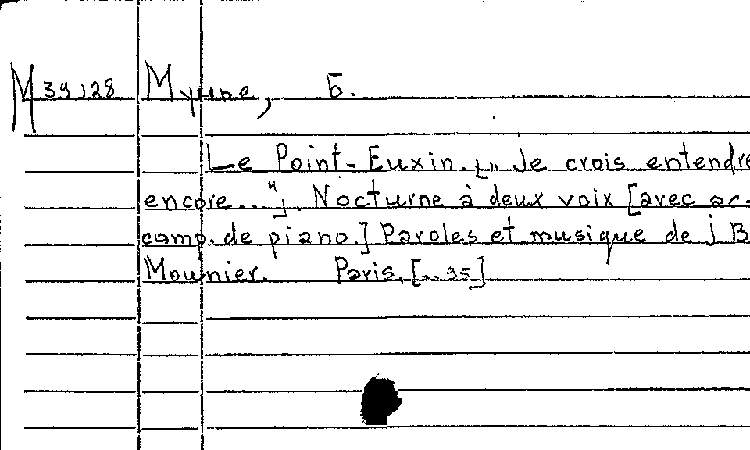 M 39128 Мунье, Б.
Le Point-Euxin. [„Je crois entendre
encore..."]. Nocturne à deux voix [avec ac-
comp. de piano.] Paroles et musique de j B
Mounier. Paris, [.. 35]